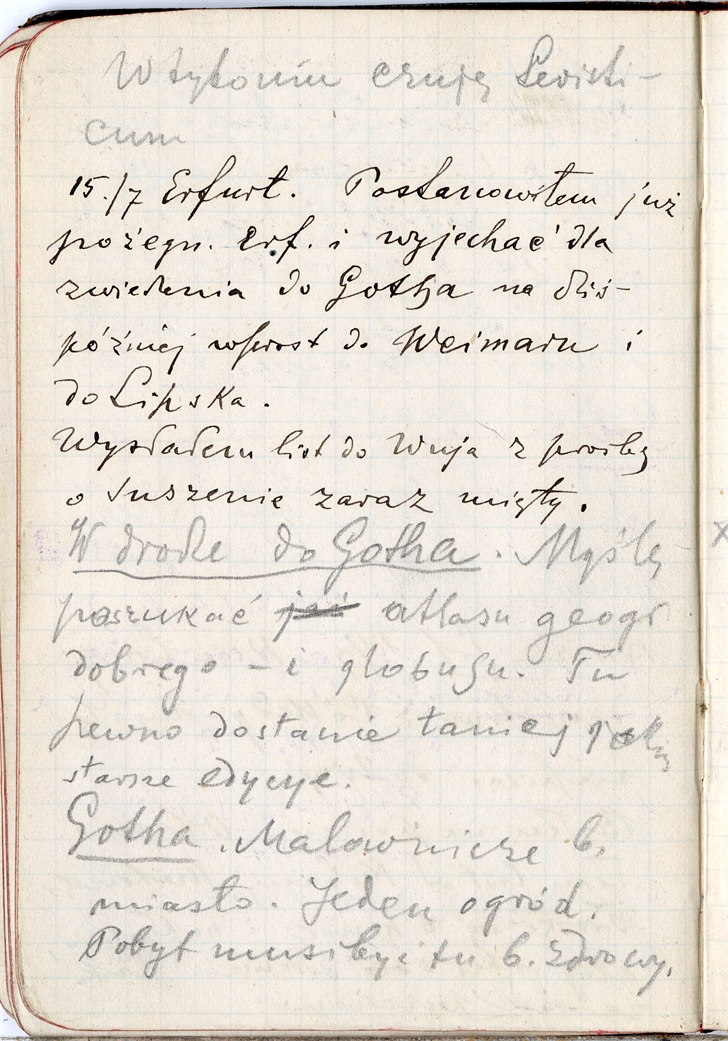 W tytoniu czuję Levisti-
cum
15./7 Erfurt. Postanowiłem już
pożegn. Erf. i wyjechać dla
zwiedzenia do Gotha na dziś-
później wprost do Weimaru i
do Lipska.
Wysłałem list do Wuja z prośbą
o suszenie zaraz mięty.
W drodze do Gotha. Myślę
poszukać już atlasu geogr
dobrego - i globusu. Tu
pewno dostanie taniej
starsze edycye.
Gotha. Malownicze b.
miasto. Jeden ogród.
Pobyt musi być tu b. zdrowy.